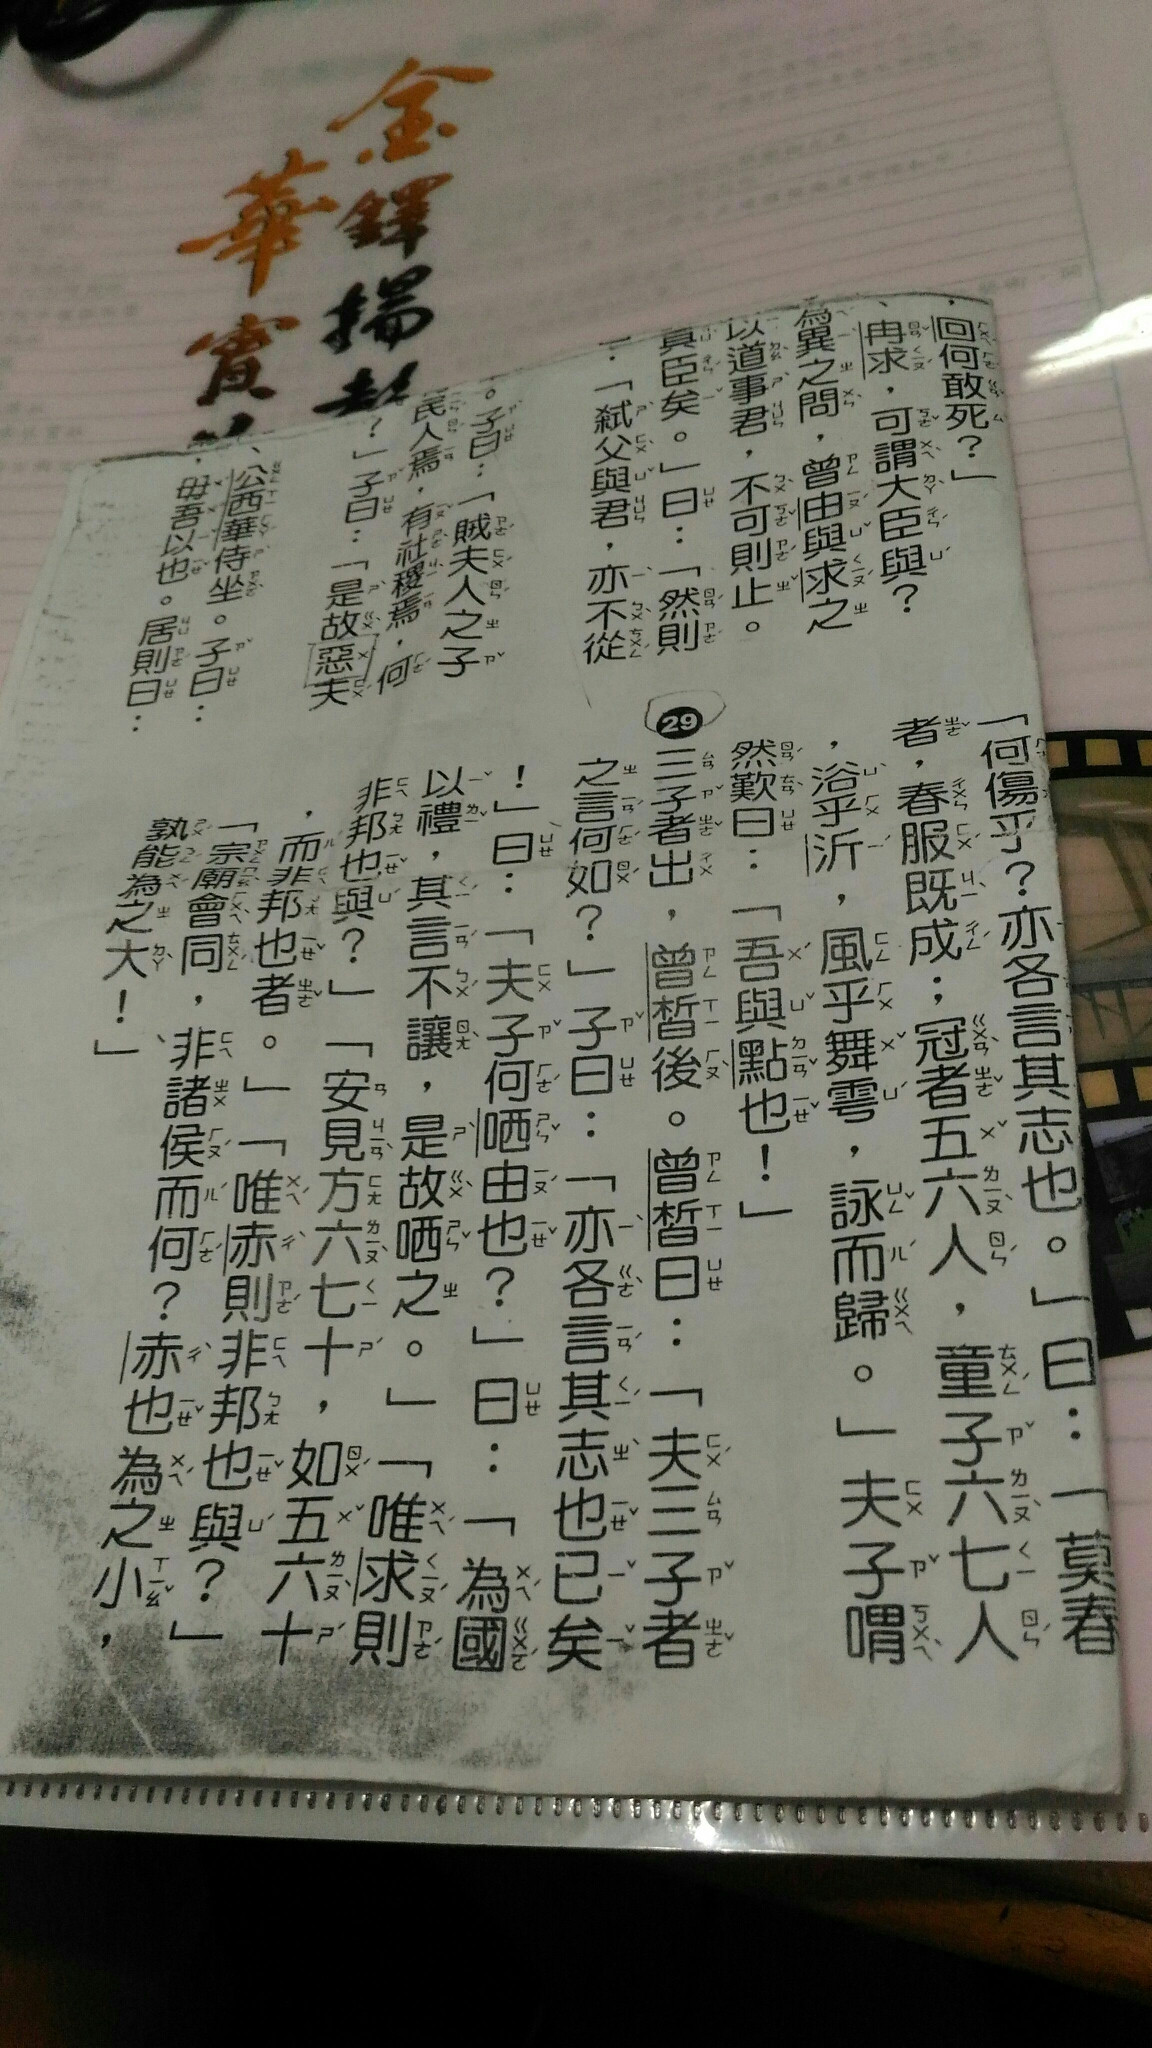 金鐸揚
華實
回何敢死？」
、冉求，可謂大臣與？
為異之問，曾由與求之
以道事君，不可則止。
真臣矣。」曰：「然則
：「弒父與君，亦不從
。子曰：「賊夫人之子
民人焉，有社稷焉，何
？」子曰：「是故惡夫
、公西華侍坐。子曰：
，毋吾以也。居則曰：
「何傷乎？亦各言其志也。」曰：「莫春
者，春服既成；冠者五六人，童子六七人
，浴乎沂，風乎舞雩，詠而歸。」夫子喟
然歎曰：「吾與點也！」
29 三子者出，曾皙後。曾皙曰：「夫三子者
之言何如？」子曰：「亦各言其志也已矣
！」曰：「夫子何哂由也？」曰：「為國
以禮，其言不讓，是故哂之。」「唯求則
非邦也與？」「安見方六七十，如五六十
，而非邦也者。」「唯赤則非邦也與？」
「宗廟會同，非諸侯而何？赤也為之小，
孰能為之大！」